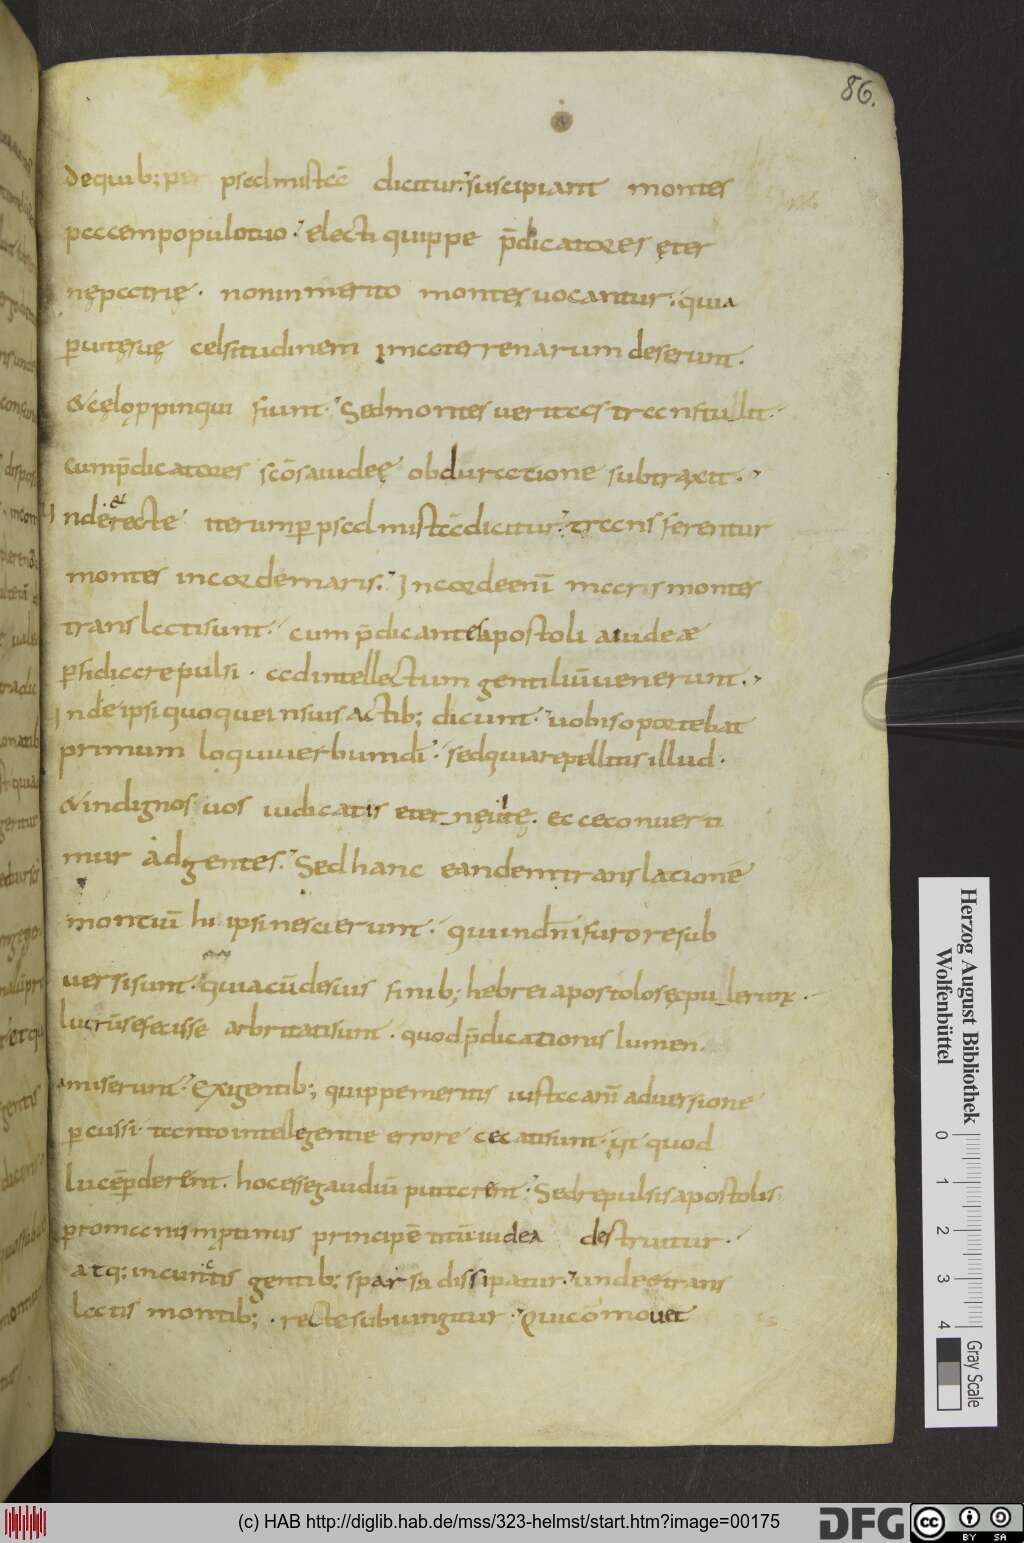 86.
dequib; per psalmistā dicitur. suscipiant montes
pacempopulotuo. electi quippe p̄dicatores ęter
nępatrię. noninmerito montes uocantur. quia
p̄uitęsuę celsitudinem imaterrenarum deserunt.
&cęlo ppinqui fiunt. Sedmontes ueritas transtulit.
cump̄dicatores sc̄os aiudeę obduratione subtraxit.
Inde & recte iterum p̄ psalmistā dicitur. transferentur
montes incordemaris. Incordeenī maris montes
translatisunt. cum p̄dicantes apostoli aiudeæ
p̄fidia repulsi. adintellectum gentiliū uenerunt.
Inde ipsi quoque insuis actib; dicunt. uobis oportebat
primum loqui uerbumdī. sedquia repellitis illud.
&indignos uos iudicatis eternę uitę. ecce conuerti
mur adgentes. Sed hanc eandem translationē
montiū hi ipsi nescierunt. quundn̄i furore sub
uersi sunt. Quia cū desuis finib; hebrei apostolos expulerunt.
lucrū sefecisse arbitratisunt. quod p̄dicationis lumen.
amiserunt. Exigentib; quippe meritis iusta anī aduersione
p̄cussi. tanto intellegentie errore cecatisunt. ut quod
lucē p̄derent. hocesse gaudiū putarent. Sed repulsis apostolis.
p̄romanis mptinus principē titū. iudea destruitur.
atq; incuntis gentib; sparsa dissipatur. unde & trans
latis montib;. recte subiungitur. Qui cōmouet
Herzog August Bibliothek
Wolfenbüttel
0 1 2 3 4
Gray Scale
(c) HAB http://diglib.hab.de/mss/323-helmst/start.htm?image=00175
DFG
cc BY SA